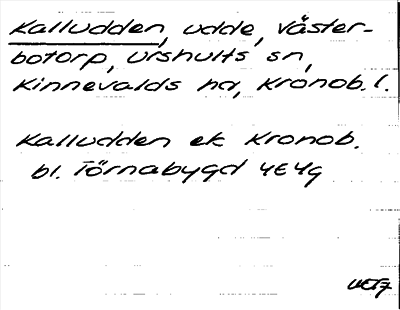 Kalludden, udde, Väster-
botorp, Urshults sn,
Kinnevalds hd, Kronob. l.
Kalludden ek Kronob.
bl. Törnabygd 4E4g